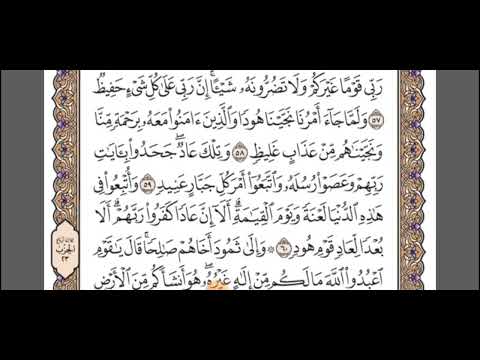 رَبِّى قَوْمًا غَيْرَكُمْ وَلَا تَضُرُّونَهُۥ شَيْـًٔا ۚ إِنَّ رَبِّى عَلَىٰ كُلِّ شَىْءٍ حَفِيظٌ
٥٧ وَلَمَّا جَآءَ أَمْرُنَا نَجَّيْنَا هُودًا وَٱلَّذِينَ ءَامَنُوا۟ مَعَهُۥ بِرَحْمَةٍ مِّنَّا
وَنَجَّيْنَٰهُم مِّنْ عَذَابٍ غَلِيظٍ ٥٨ وَتِلْكَ عَادٌ ۖ جَحَدُوا۟ بِـَٔايَٰتِ
رَبِّهِمْ وَعَصَوْا۟ رُسُلَهُۥ وَٱتَّبَعُوٓا۟ أَمْرَ كُلِّ جَبَّارٍ عَنِيدٍ ٥٩ وَأُتْبِعُوا۟ فِى
هَٰذِهِ ٱلدُّنْيَا لَعْنَةً وَيَوْمَ ٱلْقِيَٰمَةِ ۗ أَلَآ إِنَّ عَادًا كَفَرُوا۟ رَبَّهُمْ ۗ أَلَا
بُعْدًا لِّعَادٍ قَوْمِ هُودٍ ٦٠ ۞ وَإِلَىٰ ثَمُودَ أَخَاهُمْ صَٰلِحًا ۚ قَالَ يَٰقَوْمِ
ٱعْبُدُوا۟ ٱللَّهَ مَا لَكُم مِّنْ إِلَٰهٍ غَيْرُهُۥ ۖ هُوَ أَنشَأَكُم مِّنَ ٱلْأَرْضِ
الحزب
٢٣